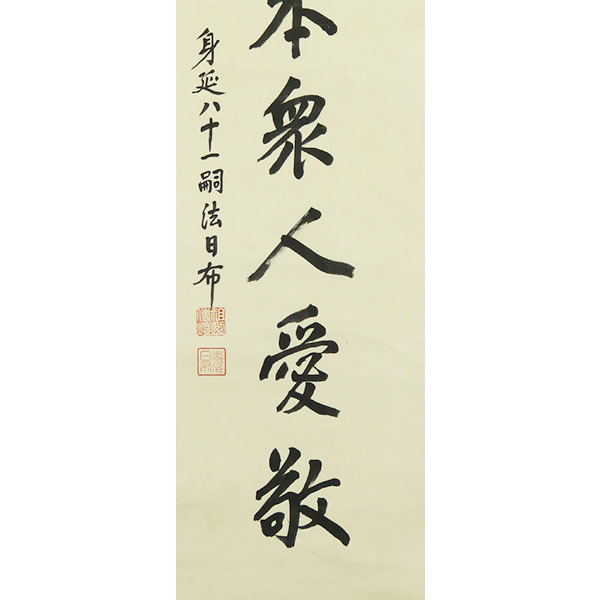 本衆人愛敬
身延八十一嗣法日布